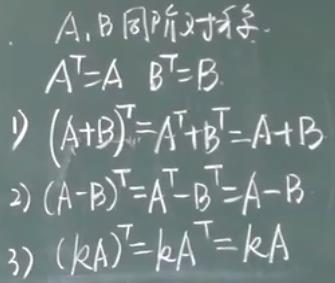 A,B同阶对称.
Aᵀ=A Bᵀ=B.
1) (A+B)ᵀ=Aᵀ+Bᵀ=A+B
2) (A-B)ᵀ=Aᵀ-Bᵀ=A-B
3) (kA)ᵀ=kAᵀ=kA